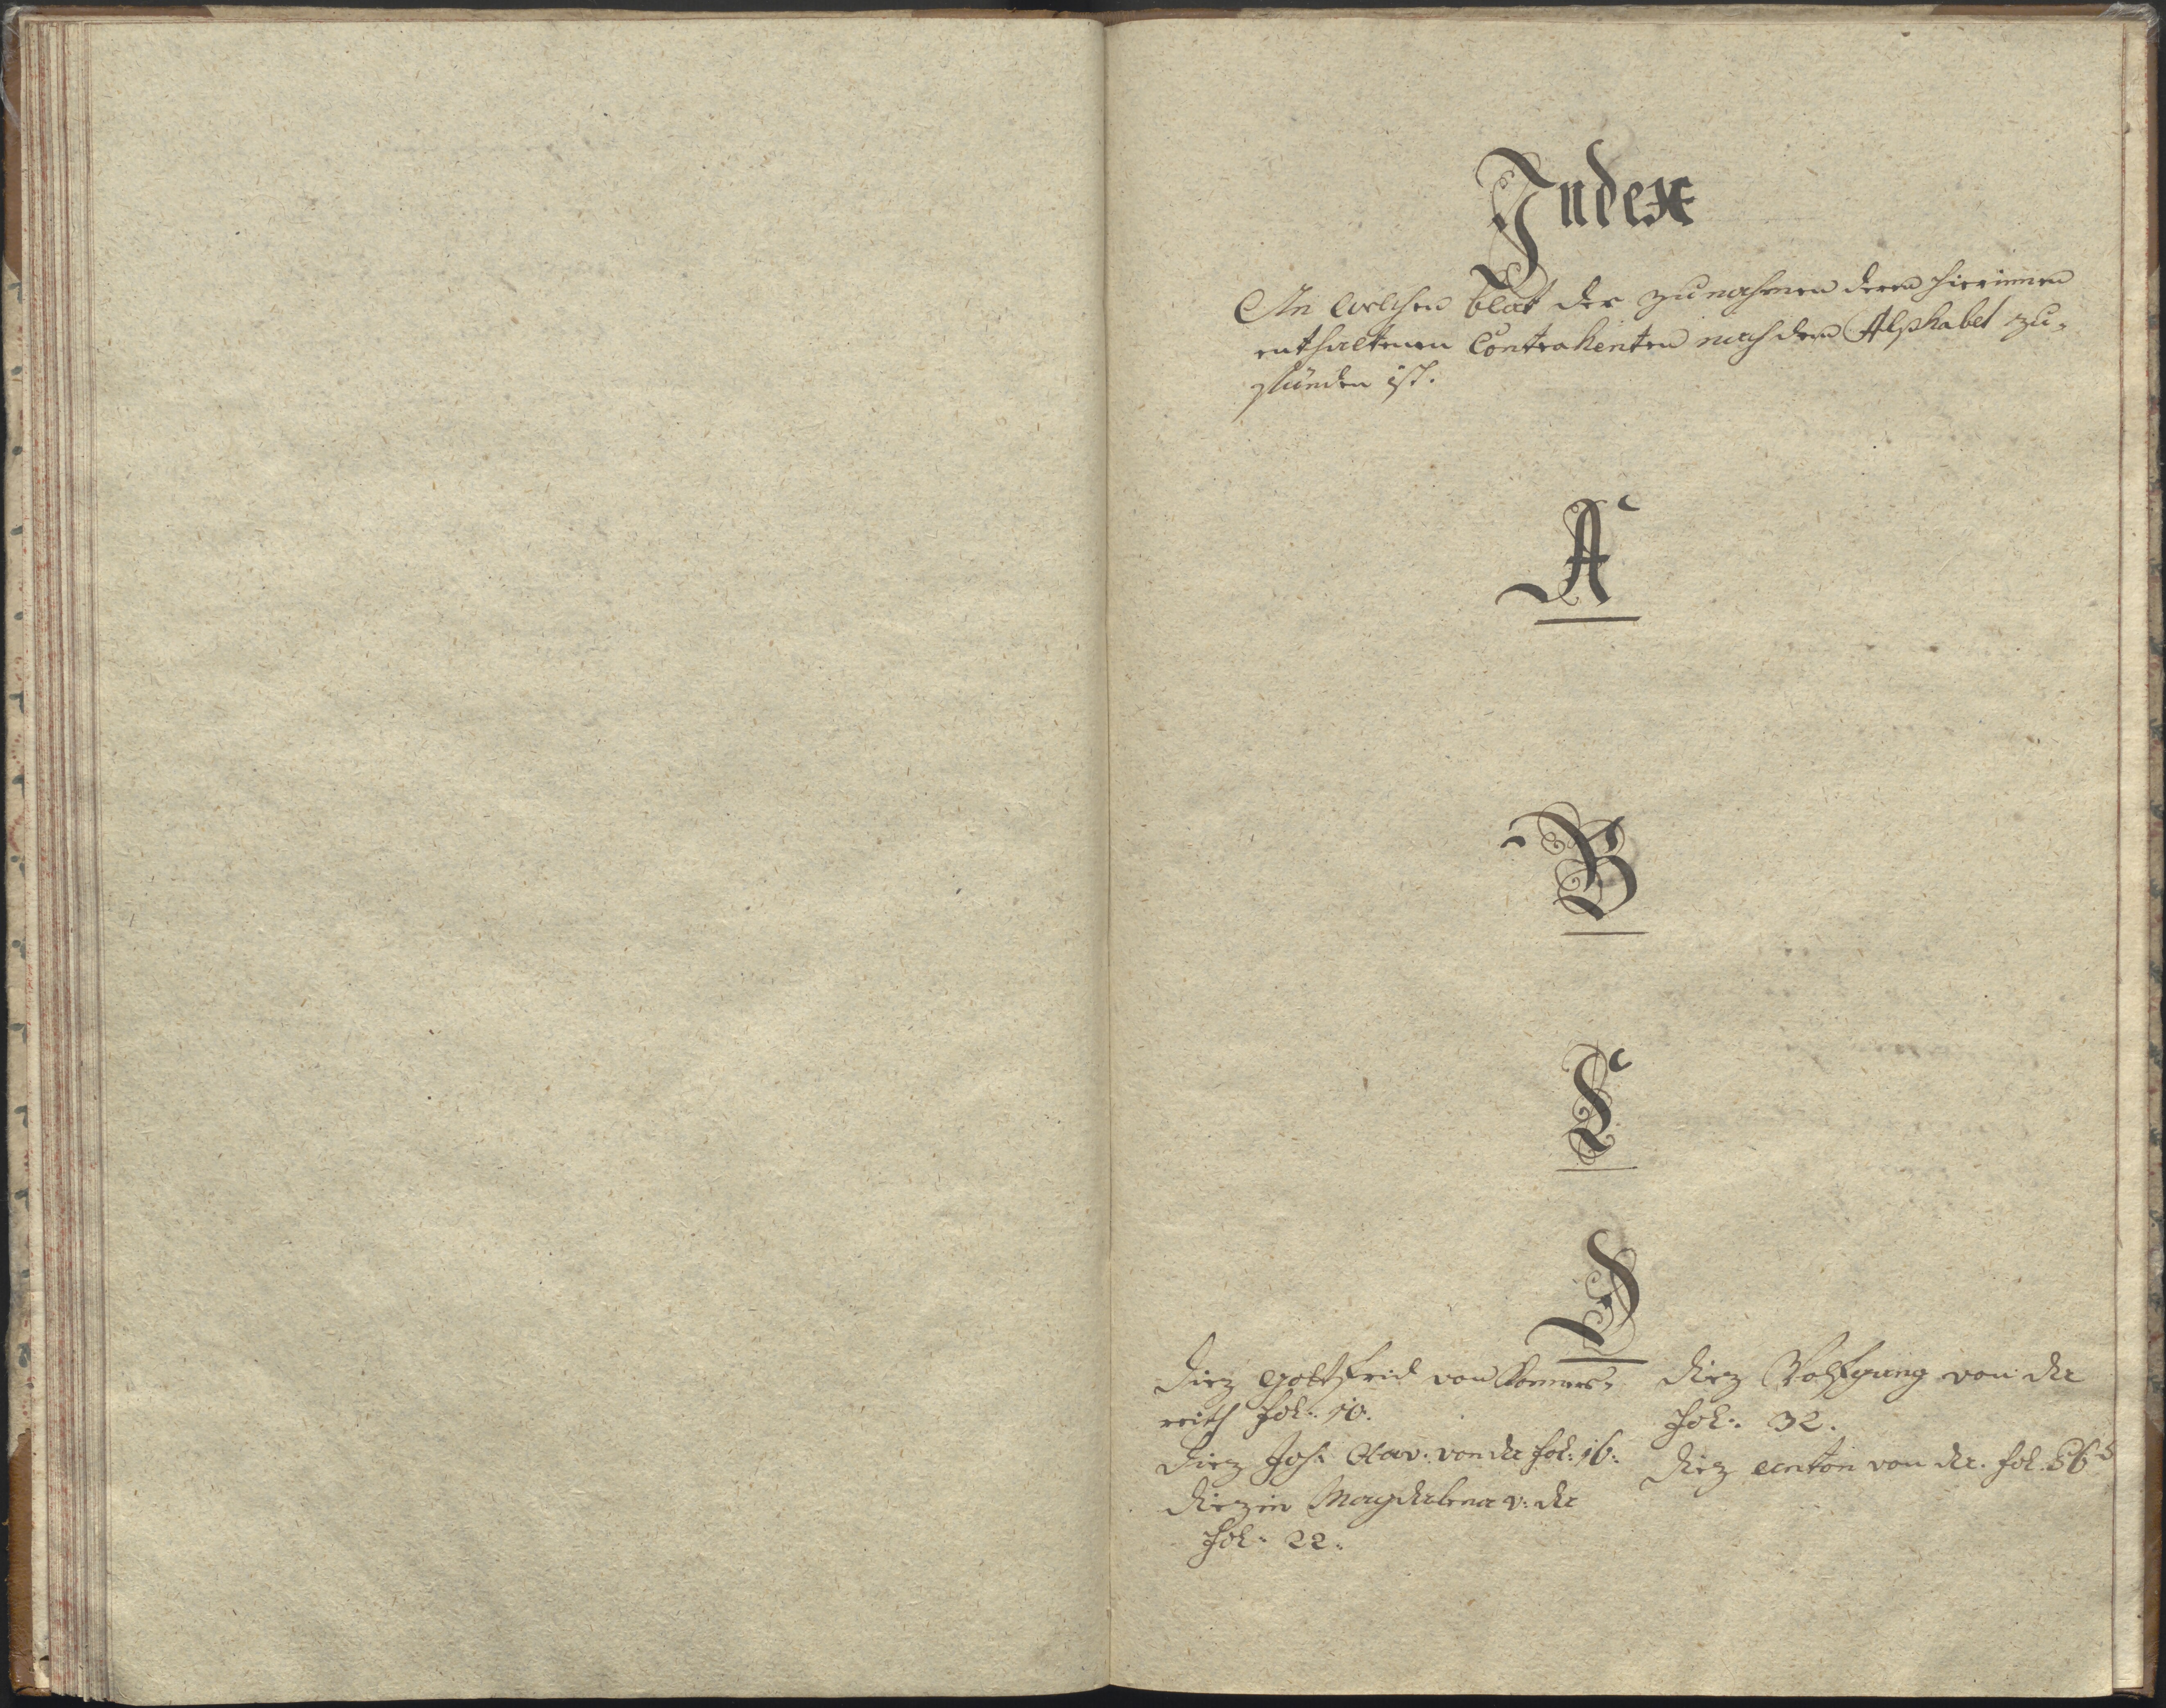 Index
An welchen blat der zunahmen deren hierinnen
enthaltenen Contrahenten nach dem Alphabet zu
finden ist.
A
B
C
D
Diez Gottfrid von Konners=
reith fol: 10.
Diez Joh: Xav: von da fol: 16:
Diezin Magdalena v: da
fol: 22:
Diez Wolfgang von da
fol: 32.
Diez Anton von da. fol. 36